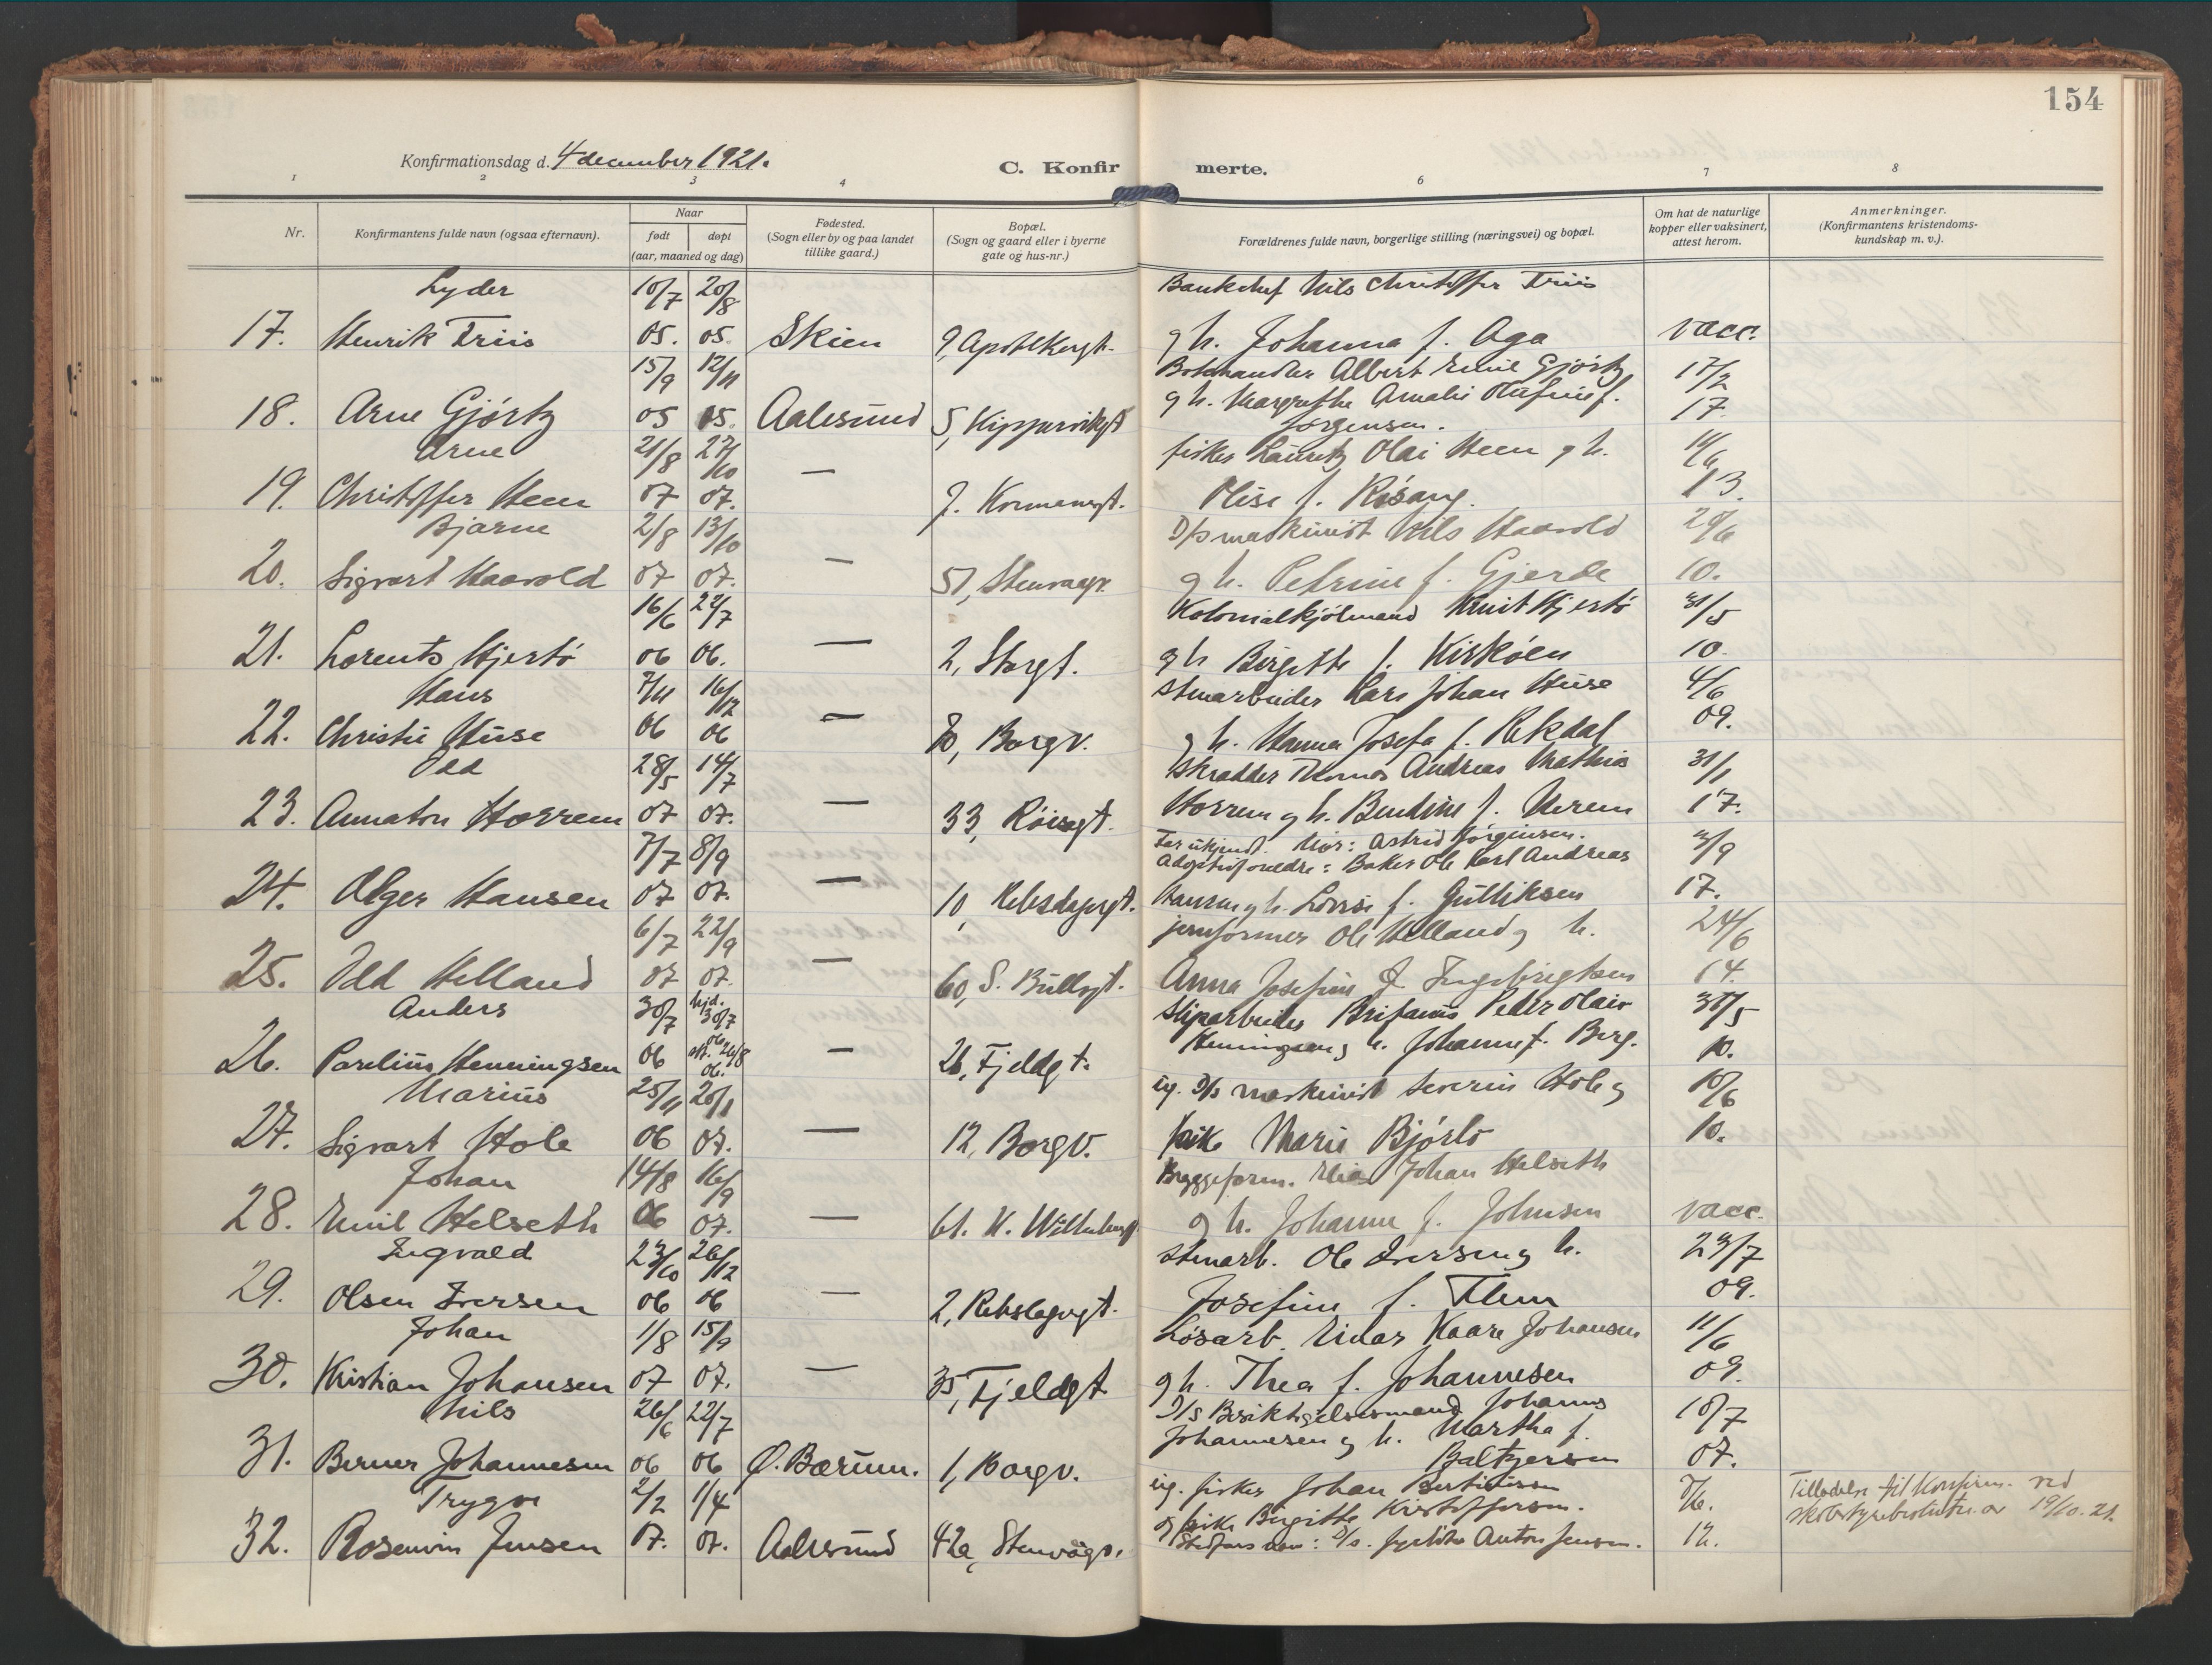 154
Konfirmationsdag d. 4 december 1921.
C. Konfirmerte.
1 2 3 4 6 7 8
Nr.
Konfirmantens fulde navn (ogsaa efternavn).
Naar
født døpt
(aar, maaned og dag)
Fødested.
(Sogn eller by og paa landet
tillike gaard.)
Bopæl.
(Sogn og gaard eller i byerne
gate og hus-nr.)
Forældrenes fulde navn, borgerlige stilling (næringsvei) og bopæl.
Om hat de naturlige
kopper eller vaksinert,
attest herom.
Anmerkninger.
(Konfirmantens kristendoms-
kundskap m. v.).
Lyder 10/7 20/8 Nils Christoffer Friis
17. Henrik Friis 05. 05. Skien 9, g h. Johanna f. Aga vacc.
15/9 12/11 Albert Emil Gjørtz 17/2
18. Arne Gjørtz 05 05. Aalesund 5, g h. Margrethe Amalie f. 17.
Jørgensen.
Arne 21/8 27/10 fisker Lauritz Olai Heen g h. 14/6
19. Christoffer Heen 07 07. — 7. f. 13.
Bjarne 2/8 13/10 D/s maskinist Nils Haavold 29/6
20. Sigvart Haavold 07 07. — 51, Stenvaagv. g h. Petrine f. Gjerde 10.
16/6 22/7 Knut Hjertø 31/5
21. Lorents Hjertø 06 06. — 2, Storgt. g h Birgitte f. Kirkøen 10.
Hans 7/11 16/12 Stenarbeider Lars Johan Huse 4/6
22. Christie Huse 06 06 — 80, Borgv. g h. Hanna Josefa f. Rekdal 09.
Odd 28/5 14/7 Skrædder Thomas Andreas Mathias 31/1
23. Annaton Horrem 07 07. — 33, Røisegt. Horrem g h. Bendine f. 17.
7/7 8/9 Far ukjendt. Mor: Astrid Jørgensen.
Adoptivforeldre: Baker Ole Karl Andreas
24. Olger Hansen 07 07. — 10, Rebslagergt. Hansen g h. Lovise f. Gulliksen 17.
6/7 22/9 jernformer Ole Helland g h. 24/6
25. Odd Helland 07 07. — 60, S. Bullsgt. Anna Josefine f. Ingebrigtsen 14.
Anders 30/7 hjd. 30/7 Peder Olai 31/5
26. Parelius Henningsen 06 06. — 26, Fjeldgt. Henningsen g h. f. Berg. 10.
Marius 25/11 20/1 ug. D/s maskinist Severin Hole g 10/6
27. Sigvart Hole 06 07. — 12, Borgv. pike Marie Bjørlo 10.
Johan 14/8 16/9 Bryggeform. Elias Johan Helseth
28. Emil Helseth 06 07. — 61. g h. Johanne f. Johnsen vacc.
Ingvald 23/10 26/12 Stenarb. Ole Iversen g h. 29/7
29. Olsen Iversen 06 06 — 2, Rebslagergt. Josefine f. 09.
Johan 1/8 15/9 Løsarb. Einar Kaare Johansen 11/6
30. Kristian Johansen 07 07. — 35, Fjeldgt g h. Thea f. Johannesen 09.
Nils 26/6 22/7 D/s Besiktigelsesmand Johannes 10/7
31. Berner Johannesen 06 06 Ø. Bærum. 1, Borgv. Johannesen g h. Martha f. 07.
Baltzersen
Trygve 2/2 1/4 ug. fisker Johan
32. Rosenvin Jensen 07. 07. Aalesund 42a, Stenvågv. og pike Birgitte Kristoffersen. 12.
Stedfars navn: D/s. fyrbøter Anton Jensen.
Tilladelse til Konfirm. ved
skolestyrebeslutn. av 19/10. 21.